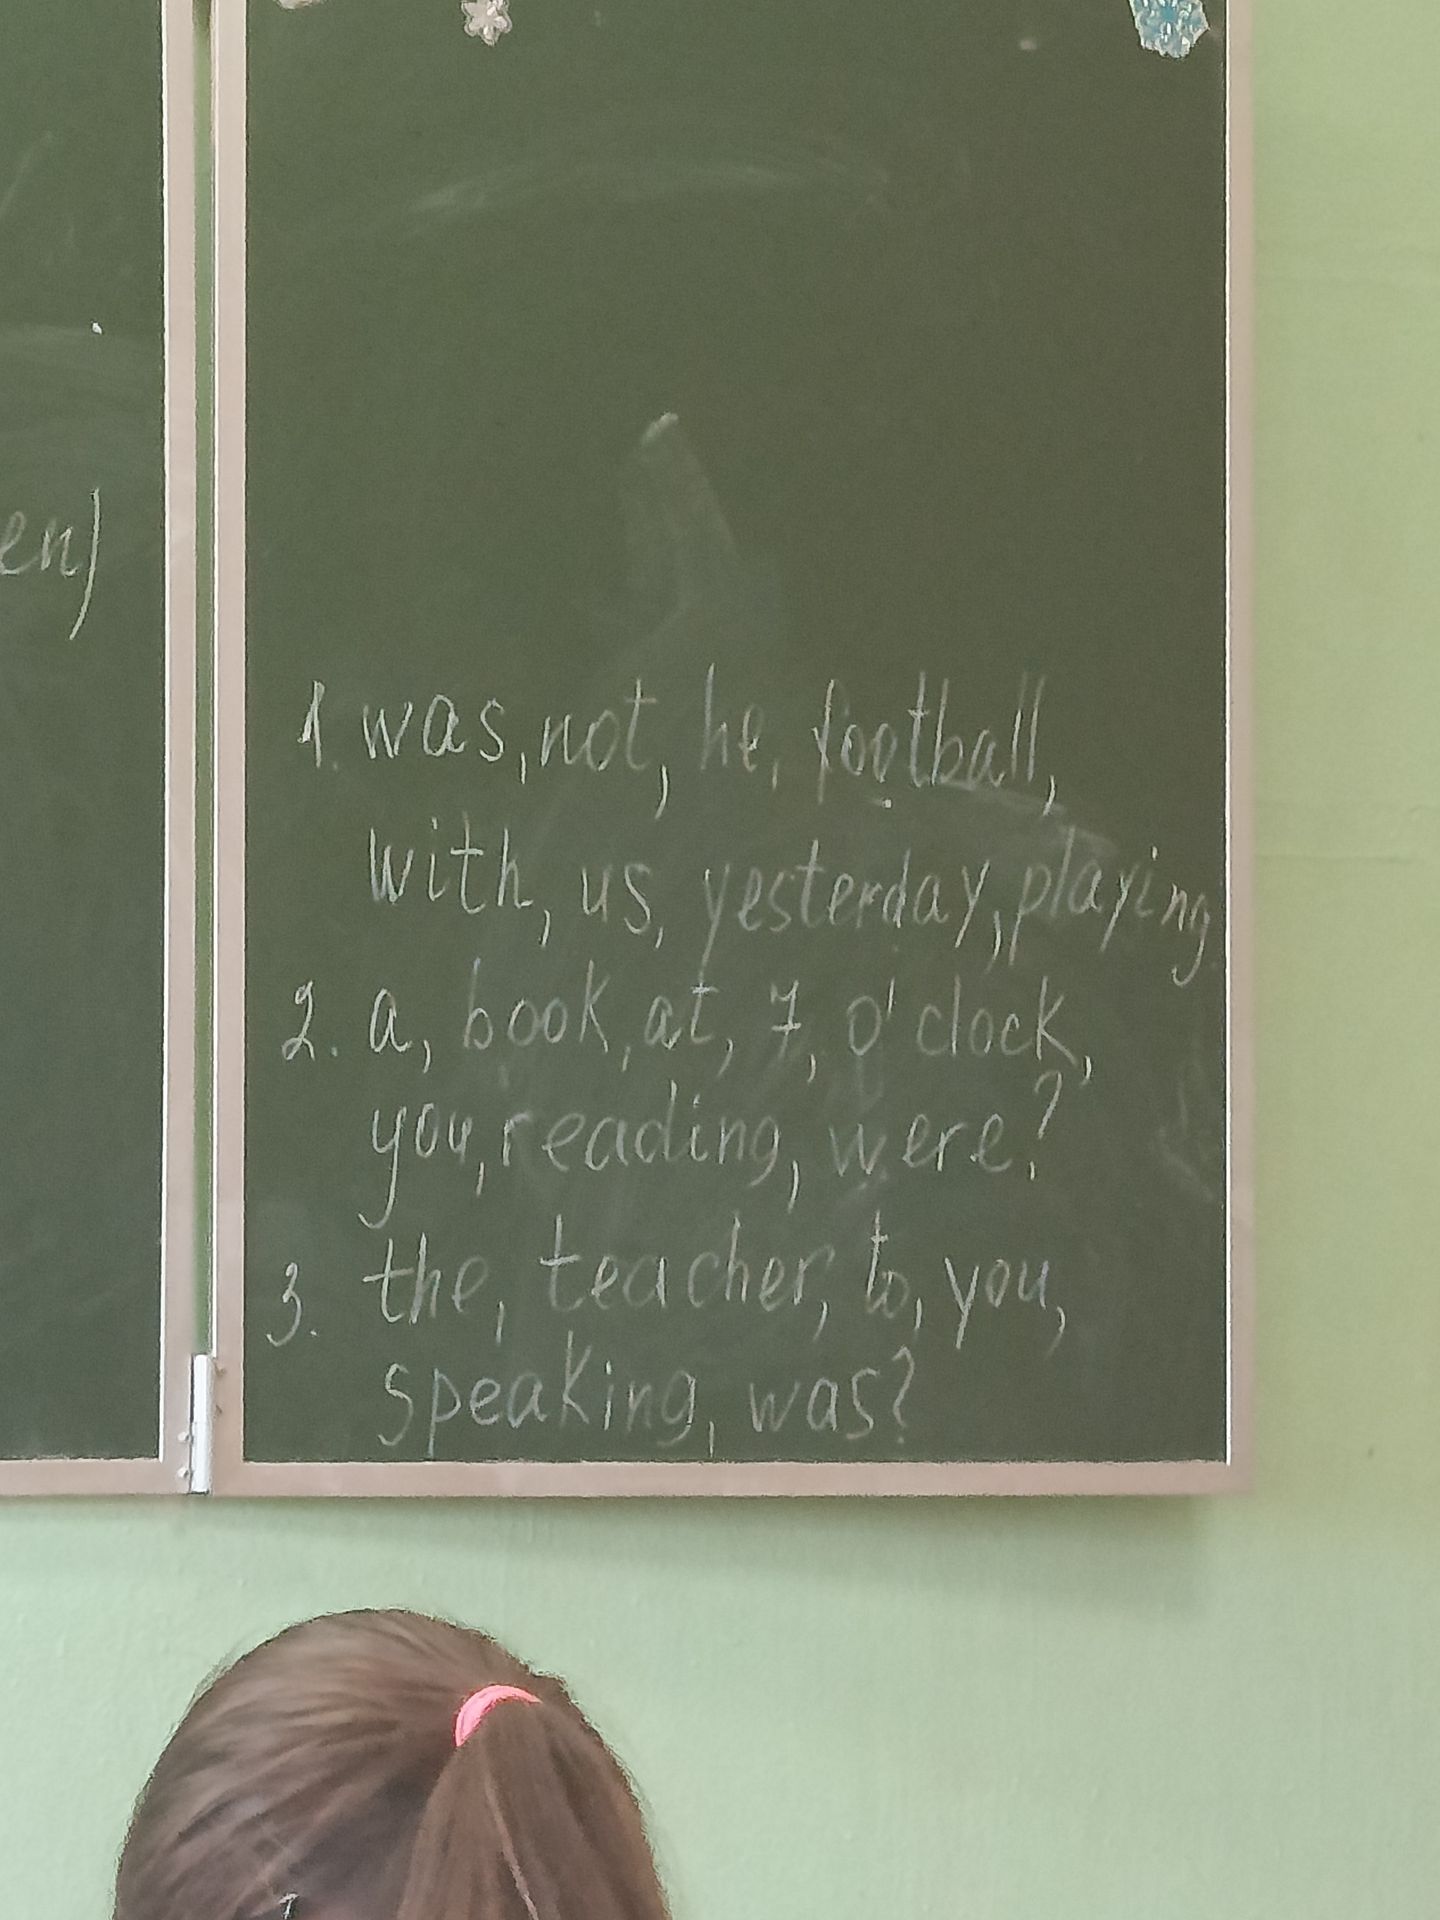 en)
1. was, not, he, football,
with, us, yesterday, playing.
2. a, book, at, 7, o'clock,
you, reading, were?
3. the, teacher, to, you,
speaking, was?